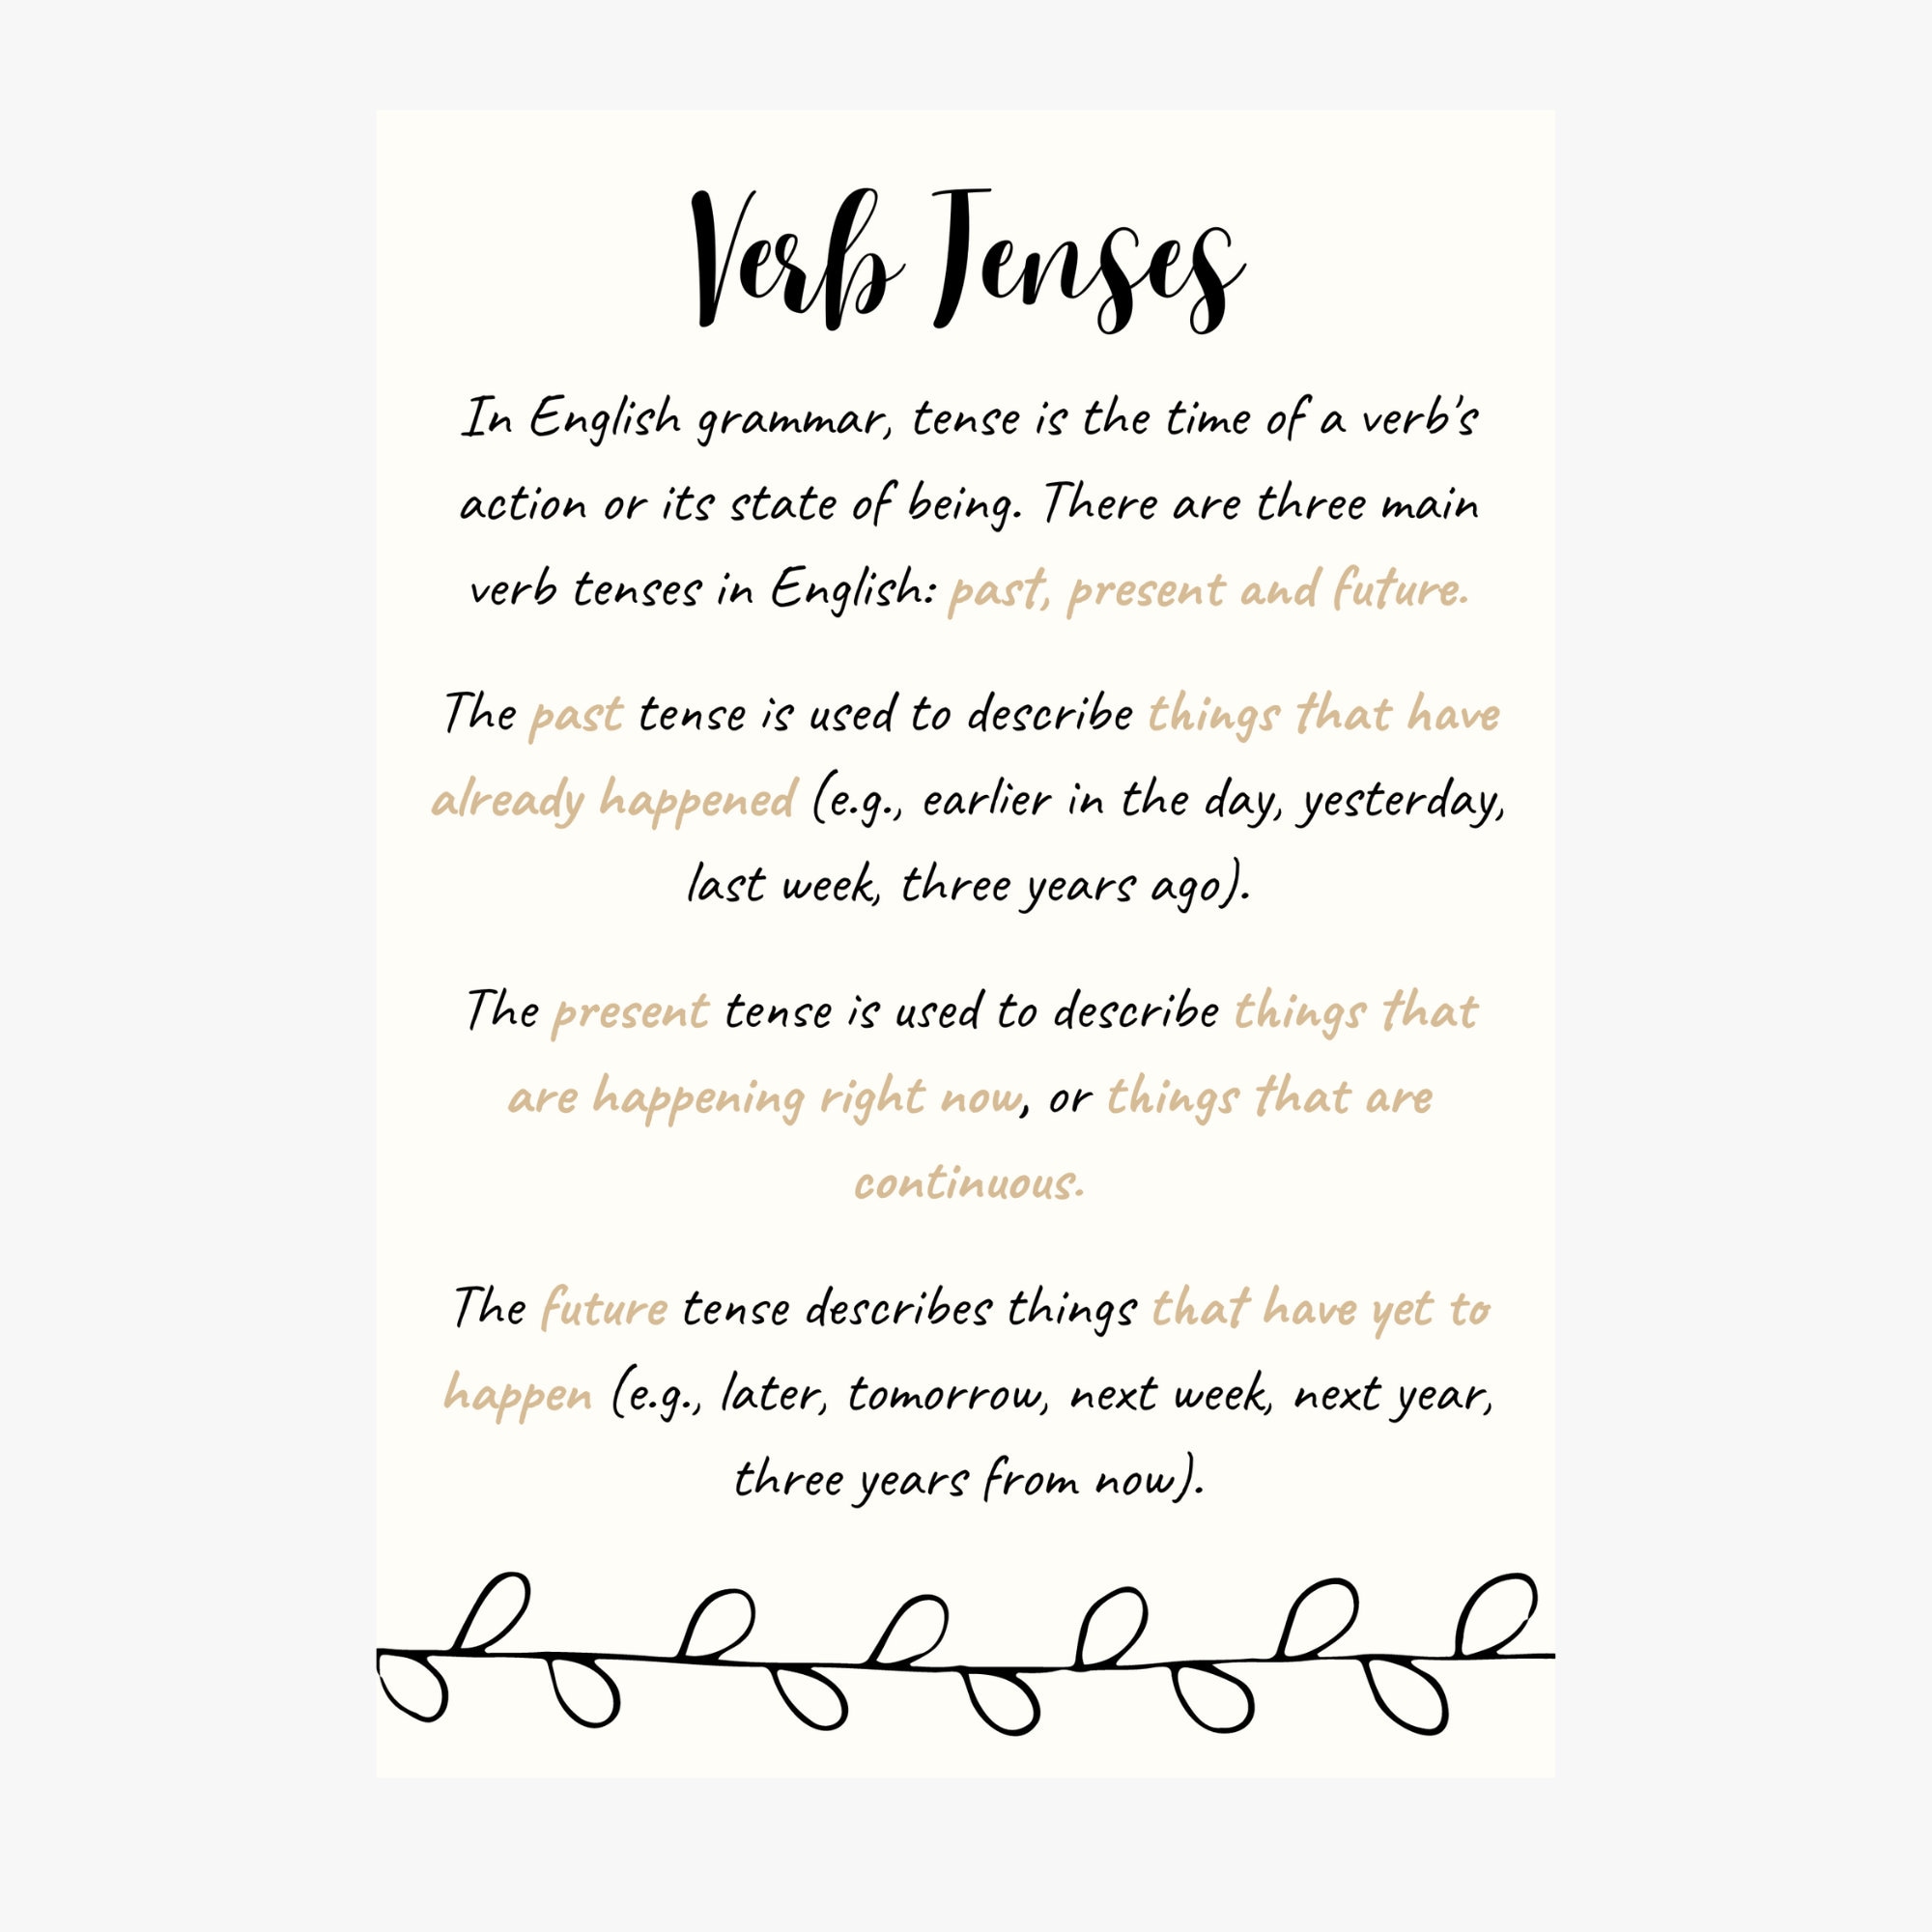 Verb Tenses
In English grammar, tense is the time of a verb's
action or its state of being. There are three main
verb tenses in English: past, present and future.
The past tense is used to describe things that have
already happened (e.g., earlier in the day, yesterday,
last week, three years ago).
The present tense is used to describe things that
are happening right now, or things that are
continuous.
The future tense describes things that have yet to
happen (e.g., later, tomorrow, next week, next year,
three years from now).